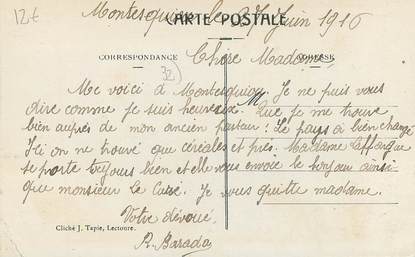 12€
Montesquiou le 27 Juin 1916
CARTE POSTALE
CORRESPONDANCE
ADRESSE
32
Chère Madame,
Me voici à Montesquiou. Je ne puis vous
dire comme je suis heureux. Que je me trouve
bien auprès de mon ancien pasteur! Le pays à bien changé
Ici on ne trouve que céréales et prés. Madame Laffargue
se porte toujours bien et elle vous envoie le bonjour ainsi
que monsieur le Curé. Je vous quitte madame.
Votre dévoué,
Cliché J. Tapie, Lectoure.
P. Barada